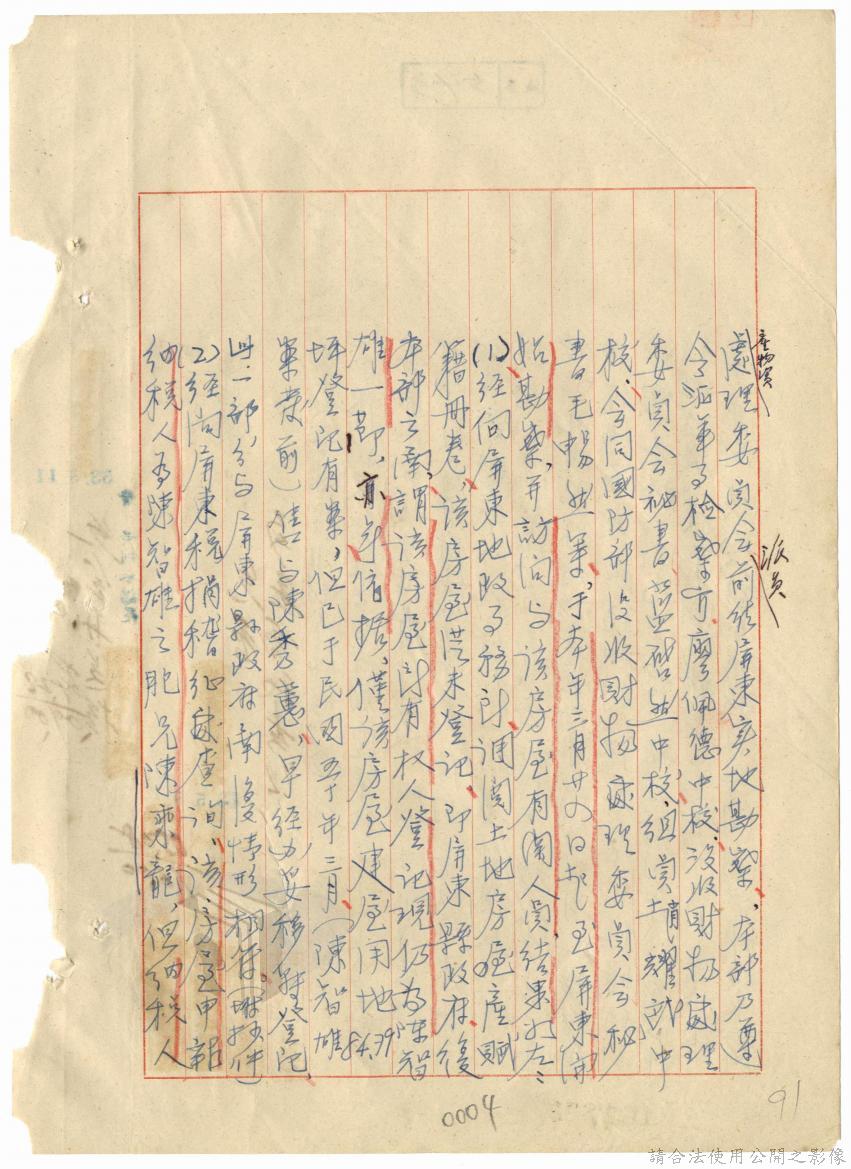 處理委員會前往屏東實地勘察,本部乃遵
產物資
派員
令派軍事檢察官廖佩德中校、沒收財物處理
委員會祕書藍啓然中校、組員蕭耀武中
校、會同國防部沒收財物處理委員會秘
書毛暢然等,于本年三月廿八日起至屏東開
始勘察,并訪問与該房屋有關人員,結果如左:
(1)經向屏東地政事務所調閱土地房屋產賦
籍冊卷,該房屋從未登記,即屏東縣政府復
本部之函,謂該房屋所有权人登記現仍為陳智
雄一節,亦無依据,僅該房屋建屋用地84.39
坪登記有案,但已于民國五十年三月(陳智雄
案發前)售与陳秀蕙,早經办妥移轉登記,
此一部分与屏東縣政府函復情形相符(附件
(2)經向屏東稅捐稽征處查詢,該房屋申報
納稅人為陳智雄之胞兄陳來龍,但納稅人
0004
91
請合法使用公開之影像